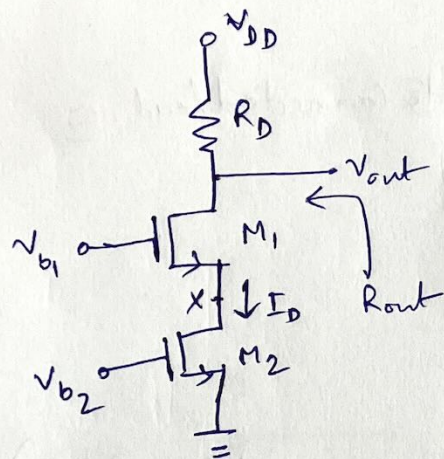 V_DD
R_D
V_out
V_b1
M_1
X
I_D
R_out
V_b2
M_2